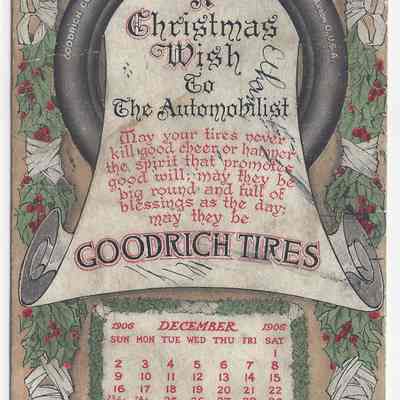 GOODRICH
A
Christmas
Wish
To
The Automobilist
May your tires never
kill good cheer or hamper
the spirit that promotes
good will; may they be
big round and full of
blessings as the day;
may they be
GOODRICH TIRES
1906 DECEMBER 1906
SUN MON TUE WED THU FRI SAT
1
2 3 4 5 6 7 8
9 10 11 12 13 14 15
16 17 18 19 20 21 22